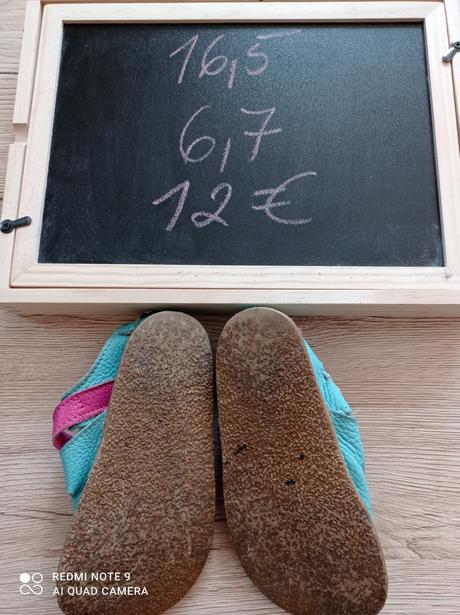 16,5
6,7
12 €
REDMI NOTE 9
AI QUAD CAMERA